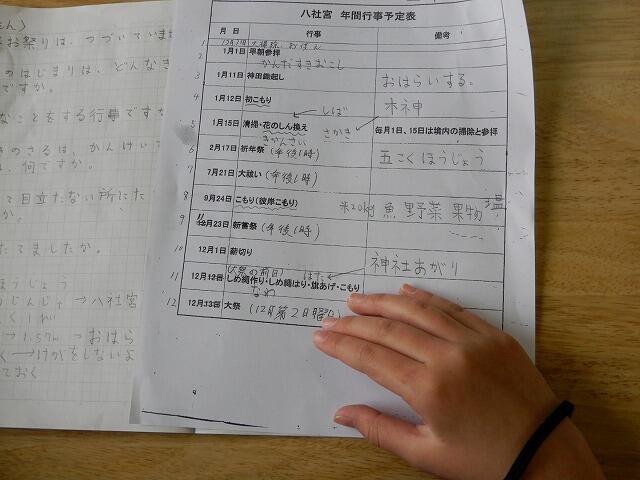 お祭りは、つづいていま
のはじまりは、どんなき
ですか。
なことをする行事ですか
きのさるは、かんけい
は、何ですか。
て目立たない所にた
か。
たてましたか。
ほうじょう
八社宮
おはら
く→けがをしないよ
ておく
八社宮 年間行事予定表
月 日 行事 備考
1
2 1月1日 早朝参拝
かんだすきおこし
3 1月11日 神田鋤起し おはらいする。
4 1月12日 初こもり 木神
しば
5 1月15日 清掃・花のしん換え さかき 毎月1日、15日は境内の掃除と参拝
きかんさい
6 2月17日 祈年祭 (午後1時) 五こくほうじょう
7 7月21日 大祓い (午後1時)
8 9月24日 こもり(彼岸こもり) 米20kg 魚 野菜 果物 塩
9 11 12月23日 新嘗祭 (午後1時)
10 12月1日 薪切り 神社あがり
(大祭の前日) はた
11 12月12日 しめ縄作り・しめ縄はり・旗あげ・こもり
なわ
12 12月13日 大祭 (12月第2日曜日)